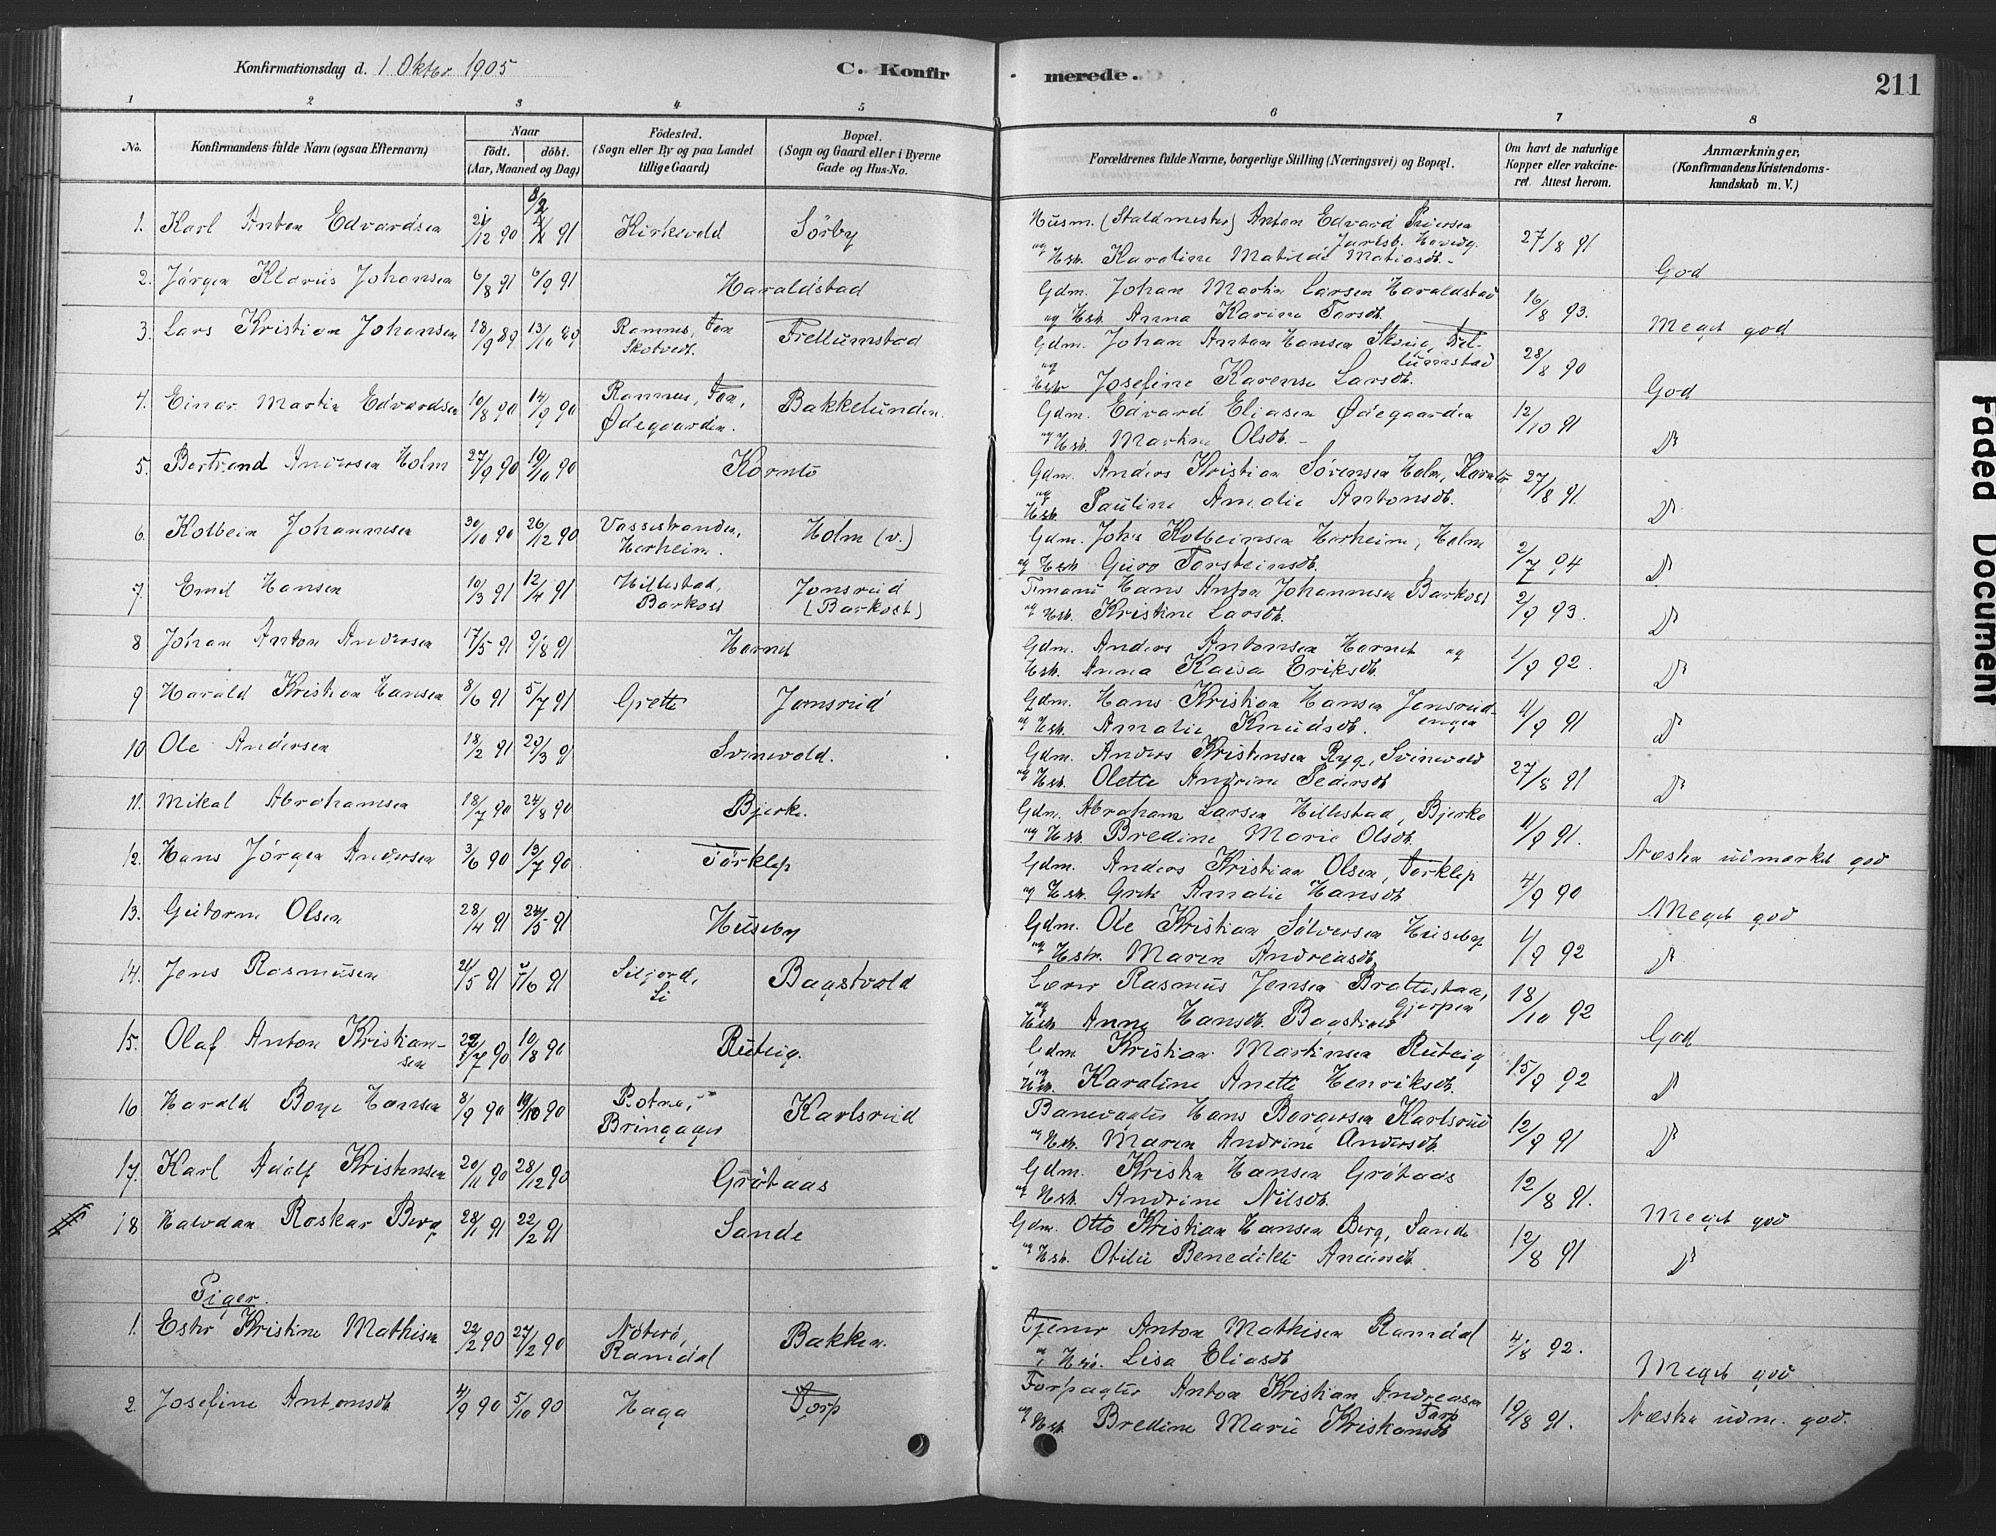 Konfirmationsdag d. 1 Oktbr. 1905
C. Konfir
merede.
211
1 2 3 4 5 6 7 8
No.
Konfirmandens fulde Navn (ogsaa Efternavn)
Naar
födt. döbt.
(Aar, Maaned og Dag)
Födested.
(Sogn eller By og paa Landet
tillige Gaard)
Bopæl.
(Sogn og Gaard eller i Byerne
Gade og Hus-No.
Forældrenes fulde Navne, borgerlige Stilling (Næringsvei) og Bopæl.
Om havt de naturlige
Kopper eller vakcine-
ret. Attest herom.
Anmærkninger,
(Konfirmandens Kristendoms-
kundskab m. V.)
1. Karl Anton Edvardsen 21/12 90 8/2 91 Kirkevold Sörby
Husm. (Staldmester) Anton Edvard Iversen
Jarlsb. Hovedg.
og Hstr. Karoline Matilde Matiasdt. 27/8 91 God
2. Jörgen Klavus Johansen 6/8 91 6/9 91 Haraldstad
Gdm. Johan Martin Larsen Haraldstad
og Hstr. Anna Karine Torsdt. 16/8 93. Meget god
3. Lars Kristian Johansen 18/9 89 13/10 89 Ramnes, Fon Skotvedt. Trellumstad
Gdm. Johan Anton Hansen Skoue, Trel-
lumstad
og Hstr Josefine Karense Larsdt. 28/8 90 God
4. Einar Martin Edvardsen 10/8 90 14/9 90 Ramnes, Fon, Ødegaarden. Bakkelunden
Gdm. Edvard Eliasen Ødegaarden
og Hstr. Martine Olsdt. 12/10 91 Do
5. Bertrand Andersen Holm 27/9 90 19/10 90 Kornto
Gdm. Anders Kristian Sörensen Holm, Kornto,
og Hstr. Pauline Amalie Antonsdt. 27/8 91 Do
6. Kolbein Johannesen 30/10 90 26/12 90 Vassestranden, Herheim. Holm (v.)
Gdm. Johs Kolbeinsen Herheim, Holm
og Hstr. Guro Torsteinsdt. 2/7 94 Do
7 Emil Hansen 10/3 91 12/4 91 Hillestad, Barkost Jonsrud (Barkost)
Tmand Hans Anton Johannesen Barkost
og Hstr. Kristine Larsdt. 2/9 93. Do
8 Johan Anton Andersen 17/5 91 9/8 91 Hornet
Gdm. Anders Antonsen Hornet og
Hstr. Anna Kaisa Eriksdt. 1/9 92. Do
9 Harald Kristian Hansen 8/6 91 5/7 91 Grette Jonsrud
Gdm. Hans Kristian Hansen Jonsrud-
engen
og Hstr. Amalie Knudsdt. 4/9 91 Do
10 Ole Andersen 18/2 91 29/3 91 Svinevold.
Gdm. Anders Kristensen Ryg, Svinevold
og Hstr. Olette Andrine Pedersdt 27/8 91 Do
11. Mikal Abrahamsen 18/7 90 24/8 90 Bjerke.
Gdm. Abraham Larsen Hillestad, Bjerke
og Hstr. Bredine Marie Olsdt. 11/9 91. Næsten udmærket god
12. Hans Jörgen Andersen 3/6 90 13/7 90 Törklep
Gdm. Anders Kristian Olsen, Torklep
og Hstr. Grete Amalie Hansdt. 4/9 90 Meget god
13. Gutorm Olsen 28/4 91 24/5 91 Huseby
Gdm. Ole Kristian Sölversen Huseby
og Hstr. Maren Andreasdt. 1/9 92 Do
14. Jens Rasmusen 21/5 91 /6 91 Siljord, Li Bagstvold
Lærer Rasmus Jensen Brattestaa,
Gjerpen
og Hstr Anne Hansdt. Bagstvold 18/10 92 God
15. Olaf Anton Kristian-
sen 22/7 90 10/8 90 Rutvig.
Gdm Kristian Martinsen Rutvig
og Hstr. Karoline Anette Henriksdt. 15/9 92 Do
16 Harald Boye Hansen 8/9 90 19/10 90 Botne, Bringager Karlsrud
Banevagter Hans Borgersen Karlsrud
og Hstr. Maren Andrine Andersdt. 12/9 91 Do
17. Karl Adolf Kristensen 20/11 90 28/12 90 Grötaas
Gdm. Kristen Hansen Grötaas
og Hstr. Andrine Nilsdt. 12/8 91. Meget god
18 Halvdan Roskar Berg 28/1 91 22/2 91 Sande
Gdm. Otto Kristian Hansen Berg, Sande
og Hstr. Otilie Benedikte Andersdt. 12/8 91 Do
Piger.
1. Ester Kristine Mathisen 22/2 90 27/2 90 Nöterö, Ramdal Bakken.
Tjener Anton Mathisen Ramdal
og Hstr. Lisa Eliasdt 4/8 92. Meget god
2. Josefine Antonsdt 4/9 90 5/10 90 Haga Torp
Forpagter Anton Kristian Andreasen
Torp
og Hstr. Bredine Marie Kristiansdt 19/8 91. Næsten udm. god.
Faded Document